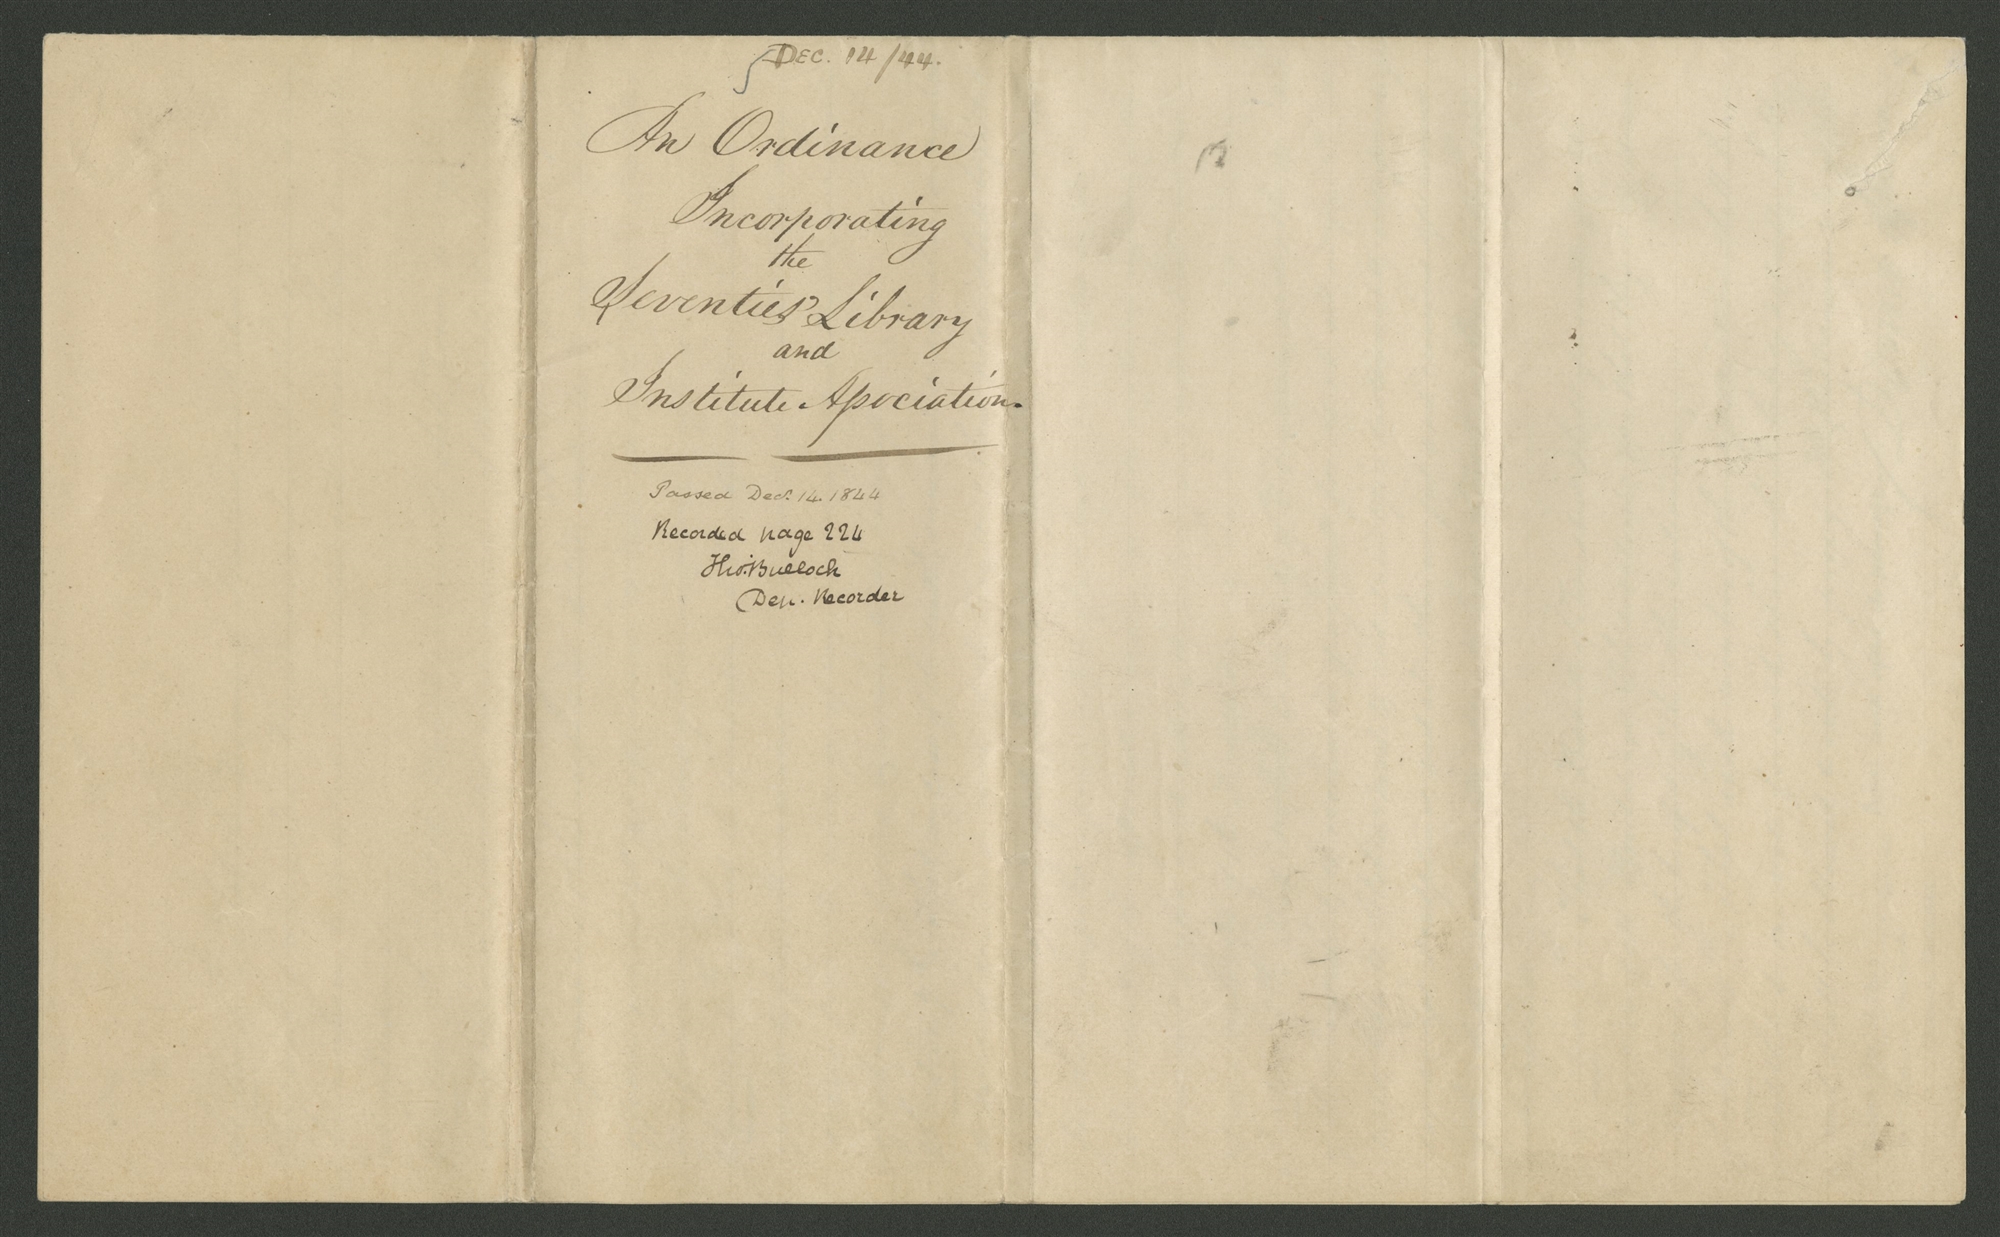 DEC. 14/44.
An Ordinance
Incorporating
the
Seventies' Library
and
Institute Association.
Passed Dec. 14. 1844
Recorded page 224
Bullock
Dep. Recorder